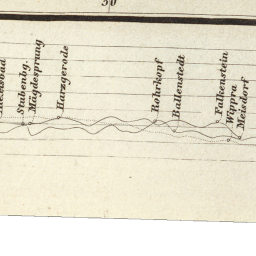 30
Stubenbg.
Mägdesprung
Harzgerode
Rohrkopf
Ballenstedt
Falkenstein
Wippra
Meisdorf